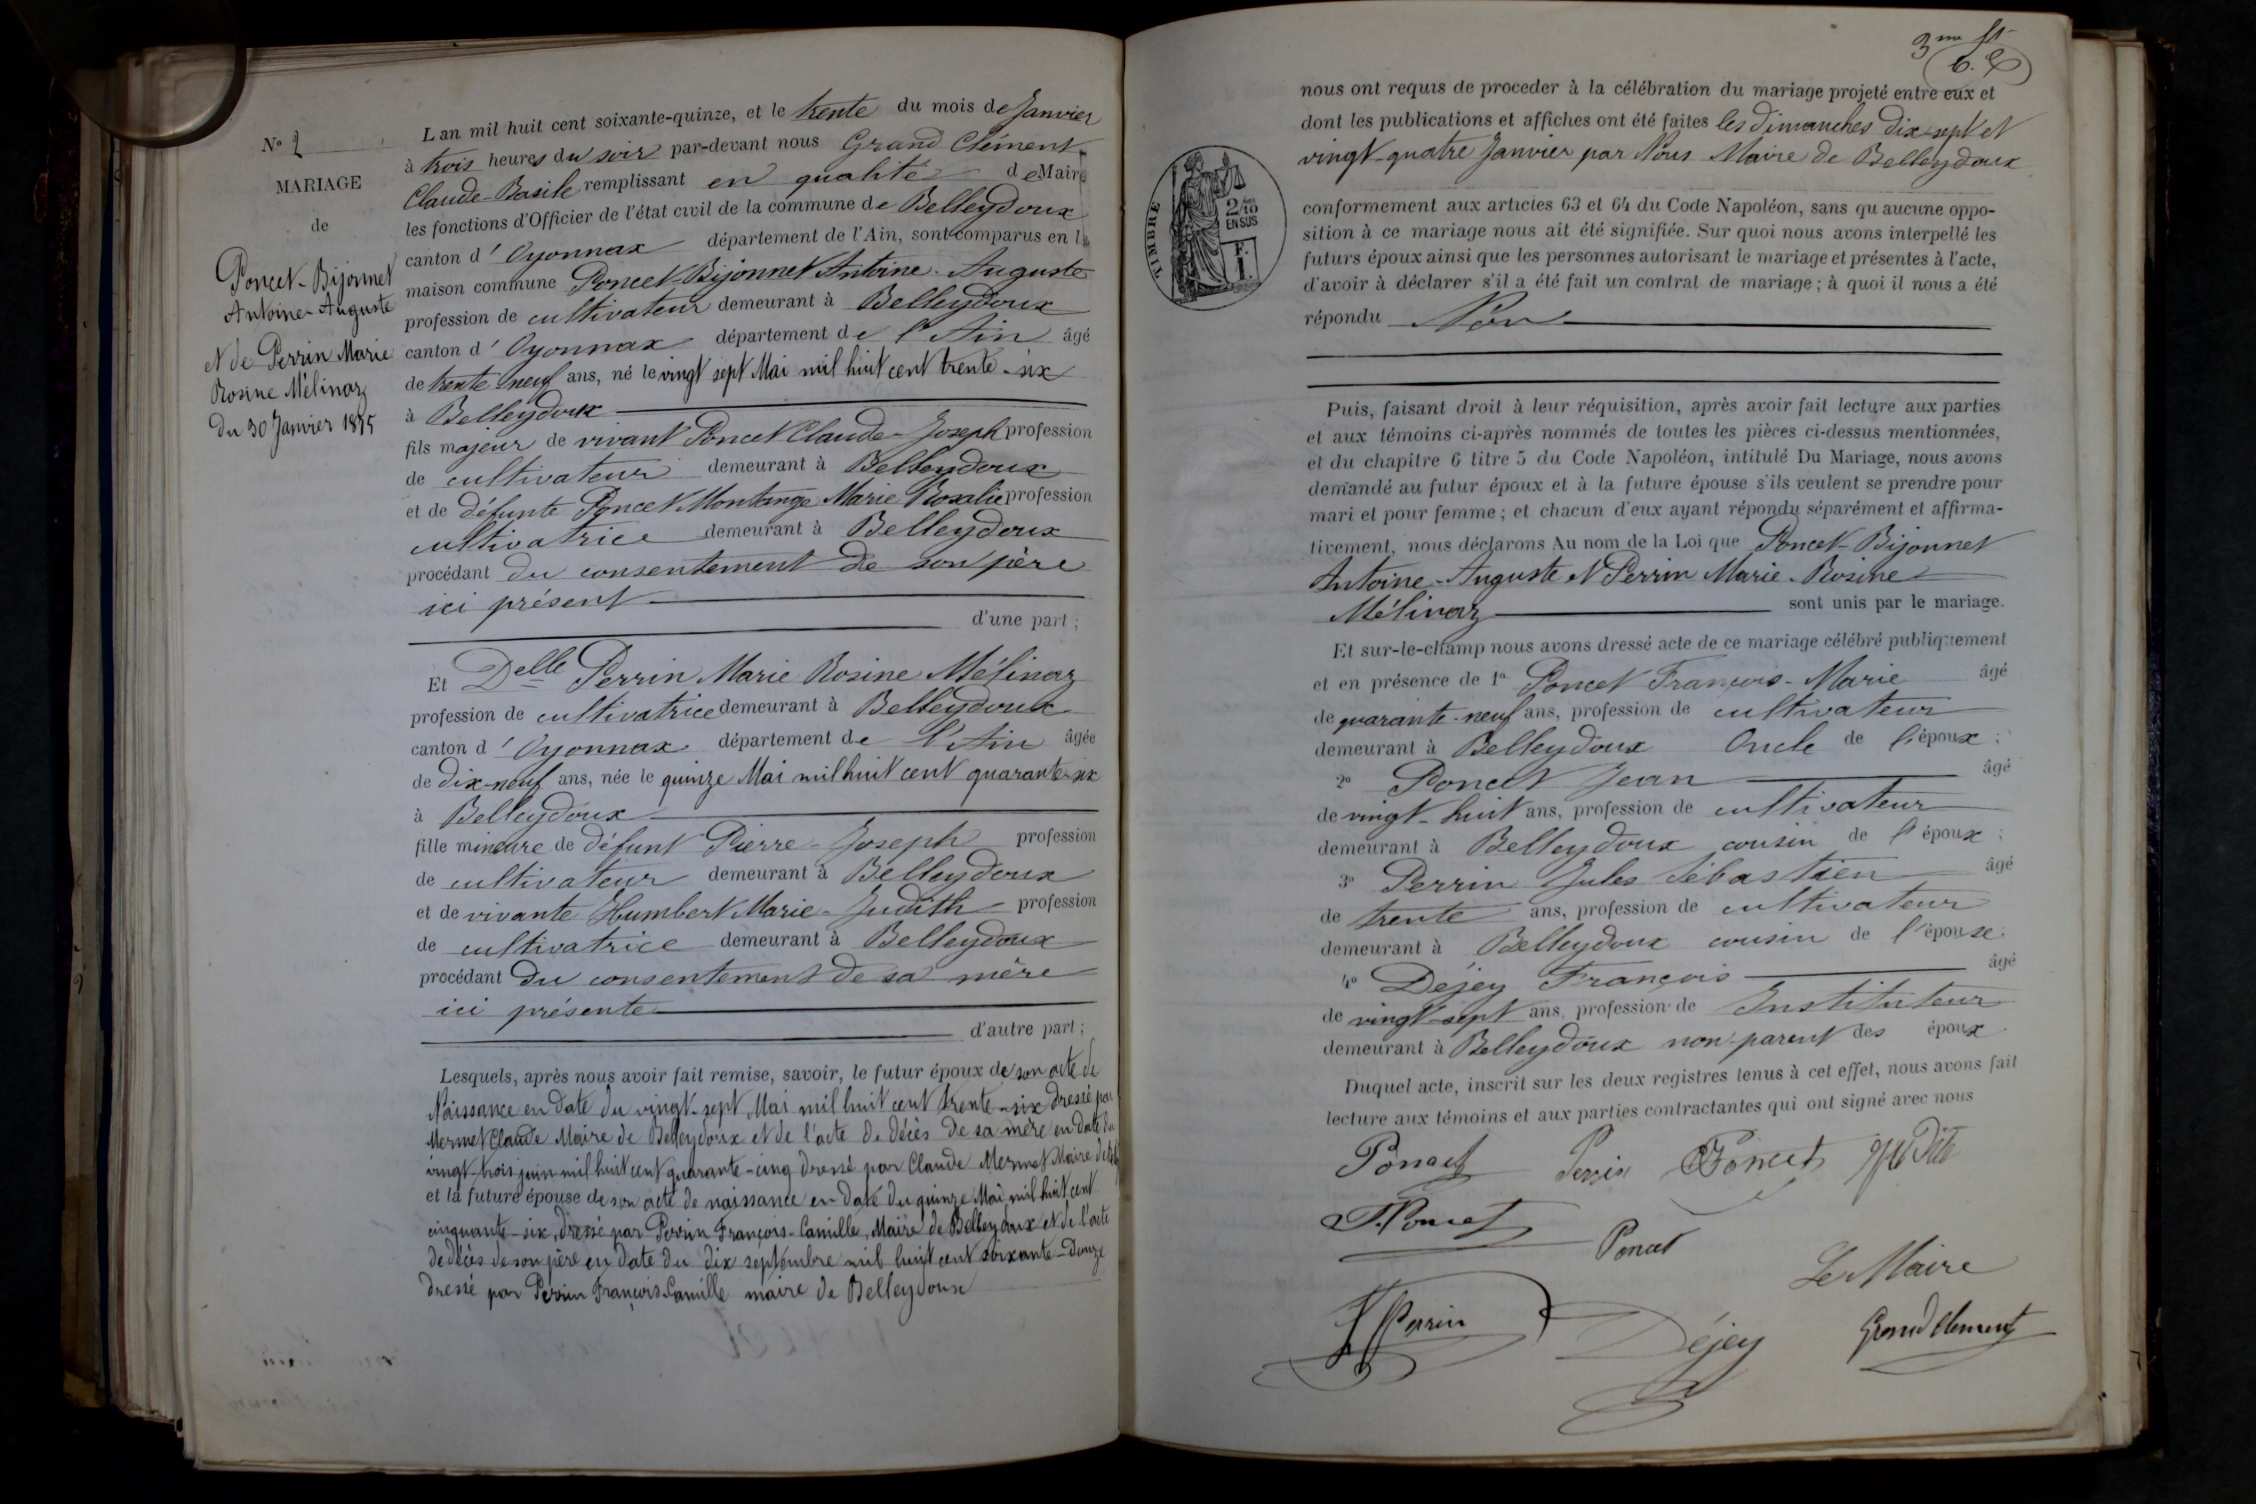 N° 2
MARIAGE
de
Poncet-Bijonnet
Antoine-Auguste
et de Perrin Marie
Rosine Mélinaz
du 30 Janvier 1875
L an mil huit cent soixante-quinze, et le trente du mois de Janvier
à trois heures du soir par-devant nous Grand Clément
Claude-Basile remplissant en qualité de Maire
les fonctions d'Officier de l'état civil de la commune de Belleydoux
canton d' Oyonnax département de l'Ain, sont comparus en la
maison commune Poncet-Bijonnet Antoine-Auguste
profession de cultivateur demeurant à Belleydoux
canton d' Oyonnax département de l'Ain âgé
de trente-neuf ans, né le vingt sept Mai mil huit cent trente-six
à Belleydoux
fils majeur de vivant Poncet Claude-Joseph profession
de cultivateur demeurant à Belleydoux
et de défunte Poncet Montange Marie Rosalie profession
cultivatrice demeurant à Belleydoux
procédant du consentement de son père
ici présent
d'une part ;
Et Delle Perrin Marie Rosine Mélinaz
profession de cultivatrice demeurant à Belleydoux
canton d' Oyonnax département de l'Ain âgée
de dix-neuf ans, née le quinze Mai mil huit cent quarante-six
à Belleydoux
fille mineure de défunt Pierre-Joseph profession
de cultivateur demeurant à Belleydoux
et de vivante Humbert Marie-Judith profession
de cultivatrice demeurant à Belleydoux
procédant du consentement de sa mère
ici présente
d'autre part ;
Lesquels, après nous avoir fait remise, savoir, le futur époux de son acte de
Naissance en date du vingt-sept Mai mil huit cent trente-six dressé par
Mermet Claude Maire de Belleydoux et de l'acte de décès de sa mère en date du
vingt-trois juin mil huit cent quarante-cinq dressé par Claude Mermet Maire
et la future épouse de son acte de naissance en date du quinze Mai mil huit cent
cinquante-six, dressé par Perrin François-Camille, Maire de Belleydoux et de l'acte
de décès de son père en date du dix septembre mil huit cent soixante-douze
dressé par Perrin François-Camille maire de Belleydoux
3me
nous ont requis de proceder à la célébration du mariage projeté entre eux et
dont les publications et affiches ont été faites les dimanches dix-sept et
vingt-quatre Janvier par Nous Maire de Belleydoux
TIMBRE
2/10
EN SUS
F.
1.
conformement aux articles 63 et 64 du Code Napoléon, sans qu aucune oppo-
sition à ce mariage nous ait été signifiée. Sur quoi nous avons interpellé les
futurs époux ainsi que les personnes autorisant le mariage et présentes à l'acte,
d'avoir à déclarer s'il a été fait un contrat de mariage ; à quoi il nous a été
répondu Non
Puis, faisant droit à leur réquisition, après avoir fait lecture aux parties
et aux témoins ci-après nommés de toutes les pièces ci-dessus mentionnées,
et du chapitre 6 titre 5 du Code Napoléon, intitulé Du Mariage, nous avons
demandé au futur époux et à la future épouse s'ils veulent se prendre pour
mari et pour femme ; et chacun d'eux ayant répondu séparément et affirma-
tivement, nous déclarons Au nom de la Loi que Poncet-Bijonnet
Antoine-Auguste et Perrin Marie-Rosine
Mélinaz sont unis par le mariage.
Et sur-le-champ nous avons dressé acte de ce mariage célébré publiquement
et en présence de 1° Poncet François-Marie âgé
de quarante-neuf ans, profession de cultivateur
demeurant à Belleydoux Oncle de l'époux ;
2° Poncet Jean âgé
de vingt-huit ans, profession de cultivateur
demeurant à Belleydoux cousin de l'époux ;
3° Perrin Jules Sébastien âgé
de trente ans, profession de cultivateur
demeurant à Belleydoux cousin de l'épouse.
4° Déjey François âgé
de vingt-sept ans, profession de Instituteur
demeurant à Belleydoux non-parent des époux
Duquel acte, inscrit sur les deux registres tenus à cet effet, nous avons fait
lecture aux témoins et aux parties contractantes qui ont signé avec nous
Poncet Perrin Poncet
Poncet
Poncet
Le Maire
Perrin Déjey Grand Clement